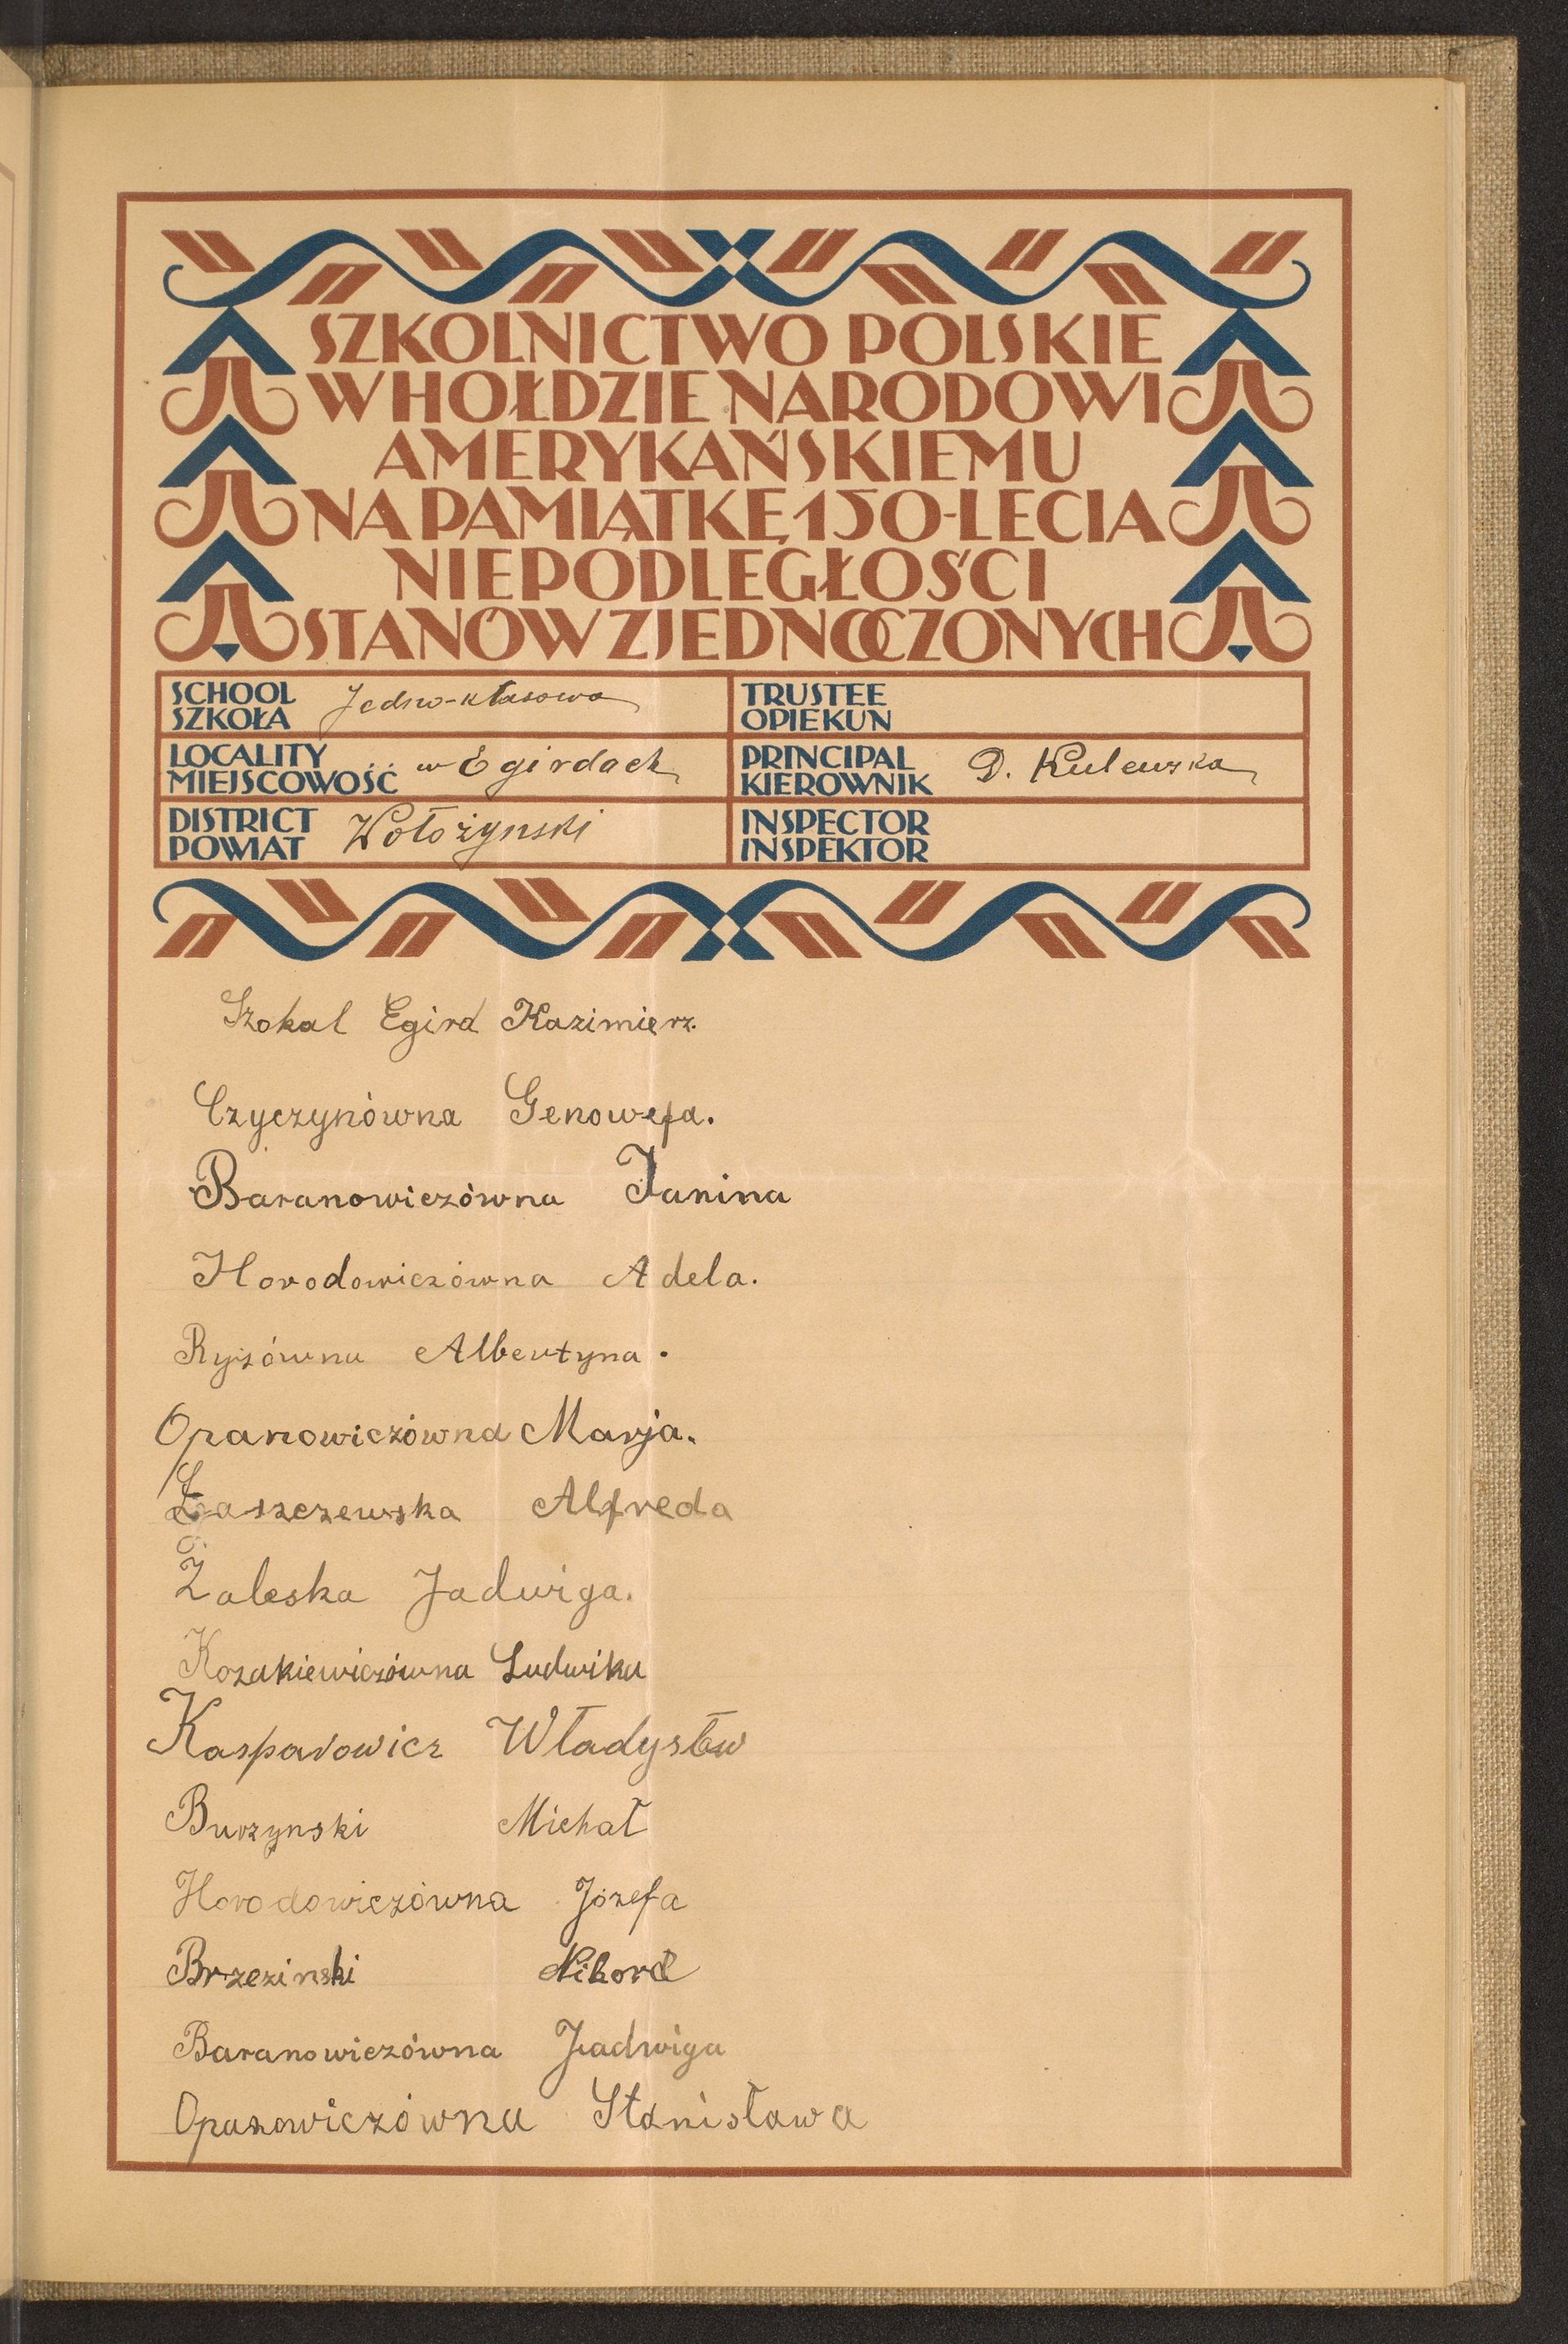 SZKOLNICTWO POLSKIE
W HOŁDZIE NARODOWI
AMERYKAŃSKIEMU
NA PAMIĄTKĘ 150-LECIA
NIEPODLEGŁOŚCI
STANÓW ZJEDNOCZONYCH
SCHOOL
SZKOŁA Jedno-kłasowa
TRUSTEE
OPIEKUN
LOCALITY
MIEJSCOWOŚĆ w Egirdach
PRINCIPAL
KIEROWNIK D. Kulewska
DISTRICT
POWIAT Wołożynski
INSPECTOR
INSPEKTOR
Szokal Egird Kazimierz.
Czyczynówna Genowefa.
Baranowiczówna Janina
Horodowiczówna Adela.
Ryżówna Albertyna.
Opanowiczówna Marja.
Łaszczewska Alfreda
Zaleska Jadwiga.
Kozakiewiczówna Ludwika
Kasparowicz Władysłw
Burzynski Michał
Horodowiczówna Józefa
Brzezinski
Baranowiczówna Jadwiga
Opanowiczówna Stanisława